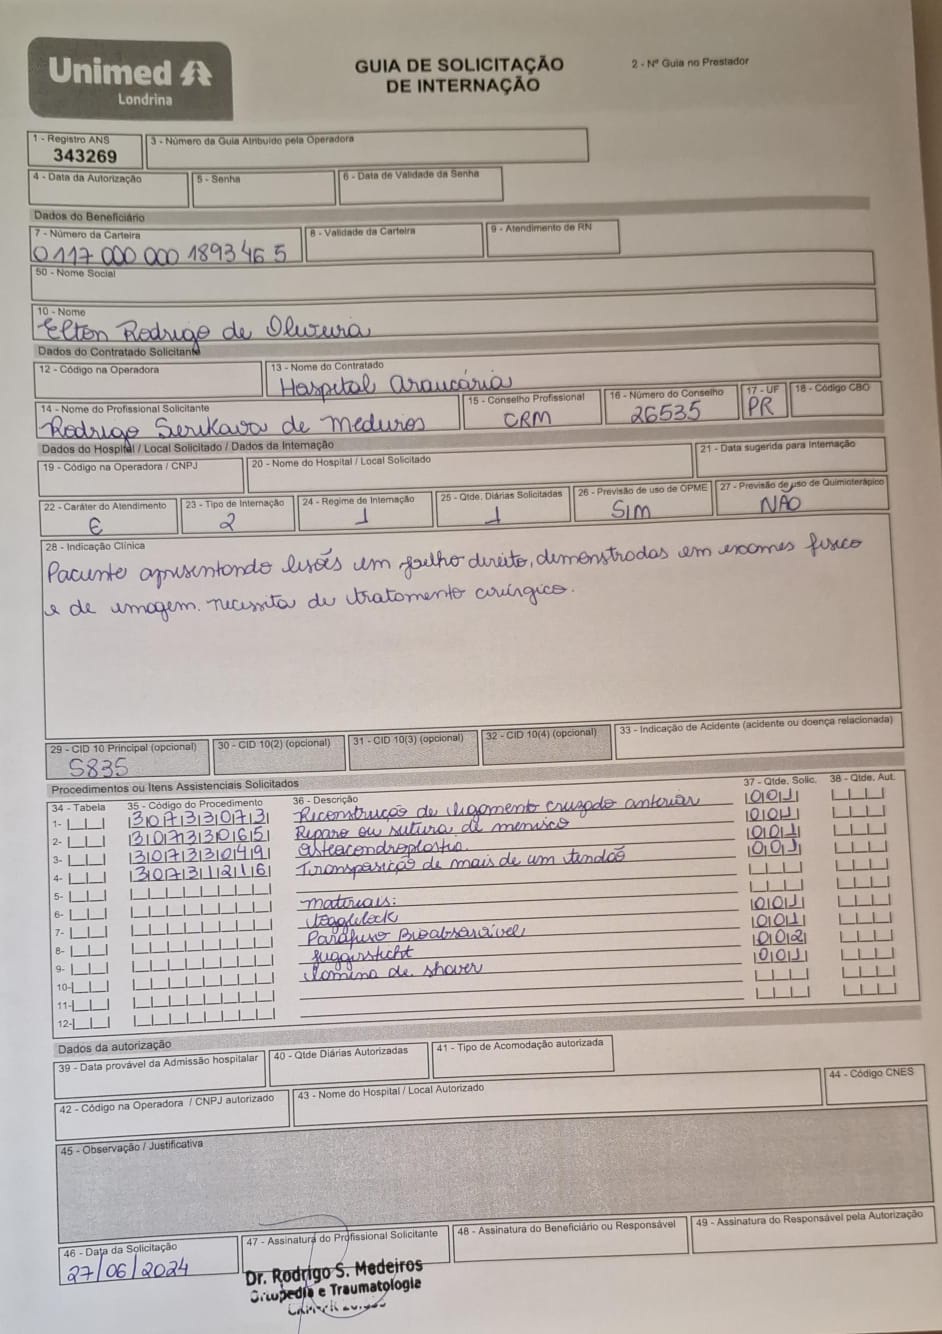 Unimed
Londrina
GUIA DE SOLICITAÇÃO
DE INTERNAÇÃO
2 - Nº Guia no Prestador
1 - Registro ANS
343269
3 - Número da Guia Atribuído pela Operadora
4 - Data da Autorização
5 - Senha
6 - Data de Validade da Senha
Dados do Beneficiário
7 - Número da Carteira
0 117 000 000 1893 46 5
8 - Validade da Carteira
9 - Atendimento de RN
50 - Nome Social
10 - Nome
Elton Rodrigo de Oliveira
Dados do Contratado Solicitante
12 - Código na Operadora
13 - Nome do Contratado
Hospital Araucária
14 - Nome do Profissional Solicitante
Rodrigo Serikava de Medeiros
15 - Conselho Profissional
CRM
16 - Número do Conselho
26535
17 - UF
PR
18 - Código CBO
Dados do Hospital / Local Solicitado / Dados da Internação
19 - Código na Operadora / CNPJ
20 - Nome do Hospital / Local Solicitado
21 - Data sugerida para Internação
22 - Caráter do Atendimento
E
23 - Tipo de Internação
2
24 - Regime de Internação
1
25 - Qtde. Diárias Solicitadas
1
26 - Previsão de uso de OPME
SIM
27 - Previsão de uso de Quimioterápico
NÃO
28 - Indicação Clínica
Paciente apresentando lesões em joelho direito, demonstradas em exames fisico
e de imagem. necessita de tratamento cirúrgico.
29 - CID 10 Principal (opcional)
S835
30 - CID 10(2) (opcional)
31 - CID 10(3) (opcional)
32 - CID 10(4) (opcional)
33 - Indicação de Acidente (acidente ou doença relacionada)
Procedimentos ou Itens Assistenciais Solicitados
34 - Tabela
35 - Código do Procedimento
36 - Descrição
37 - Qtde. Solic.
38 - Qtde. Aut.
1- 30733073 Reconstrução de ligamento cruzado anterior 001
2- 30733065 Reparo ou sutura de menisco 001
3- 30733049 Osteocondroplastia 001
4- 30731216 Transposição de mais de um tendão 001
5-
6- materiais:
7- toggllock 001
8- Parafuso Bioabsorvível 001
9- juggersticht 002
10- lamina de shaver 001
11-
12-
Dados da autorização
39 - Data provável da Admissão hospitalar
40 - Qtde Diárias Autorizadas
41 - Tipo de Acomodação autorizada
42 - Código na Operadora / CNPJ autorizado
43 - Nome do Hospital / Local Autorizado
44 - Código CNES
45 - Observação / Justificativa
46 - Data da Solicitação
27/06/2024
47 - Assinatura do Profissional Solicitante
48 - Assinatura do Beneficiário ou Responsável
49 - Assinatura do Responsável pela Autorização
Dr. Rodrigo S. Medeiros
Ortopedia e Traumatologia